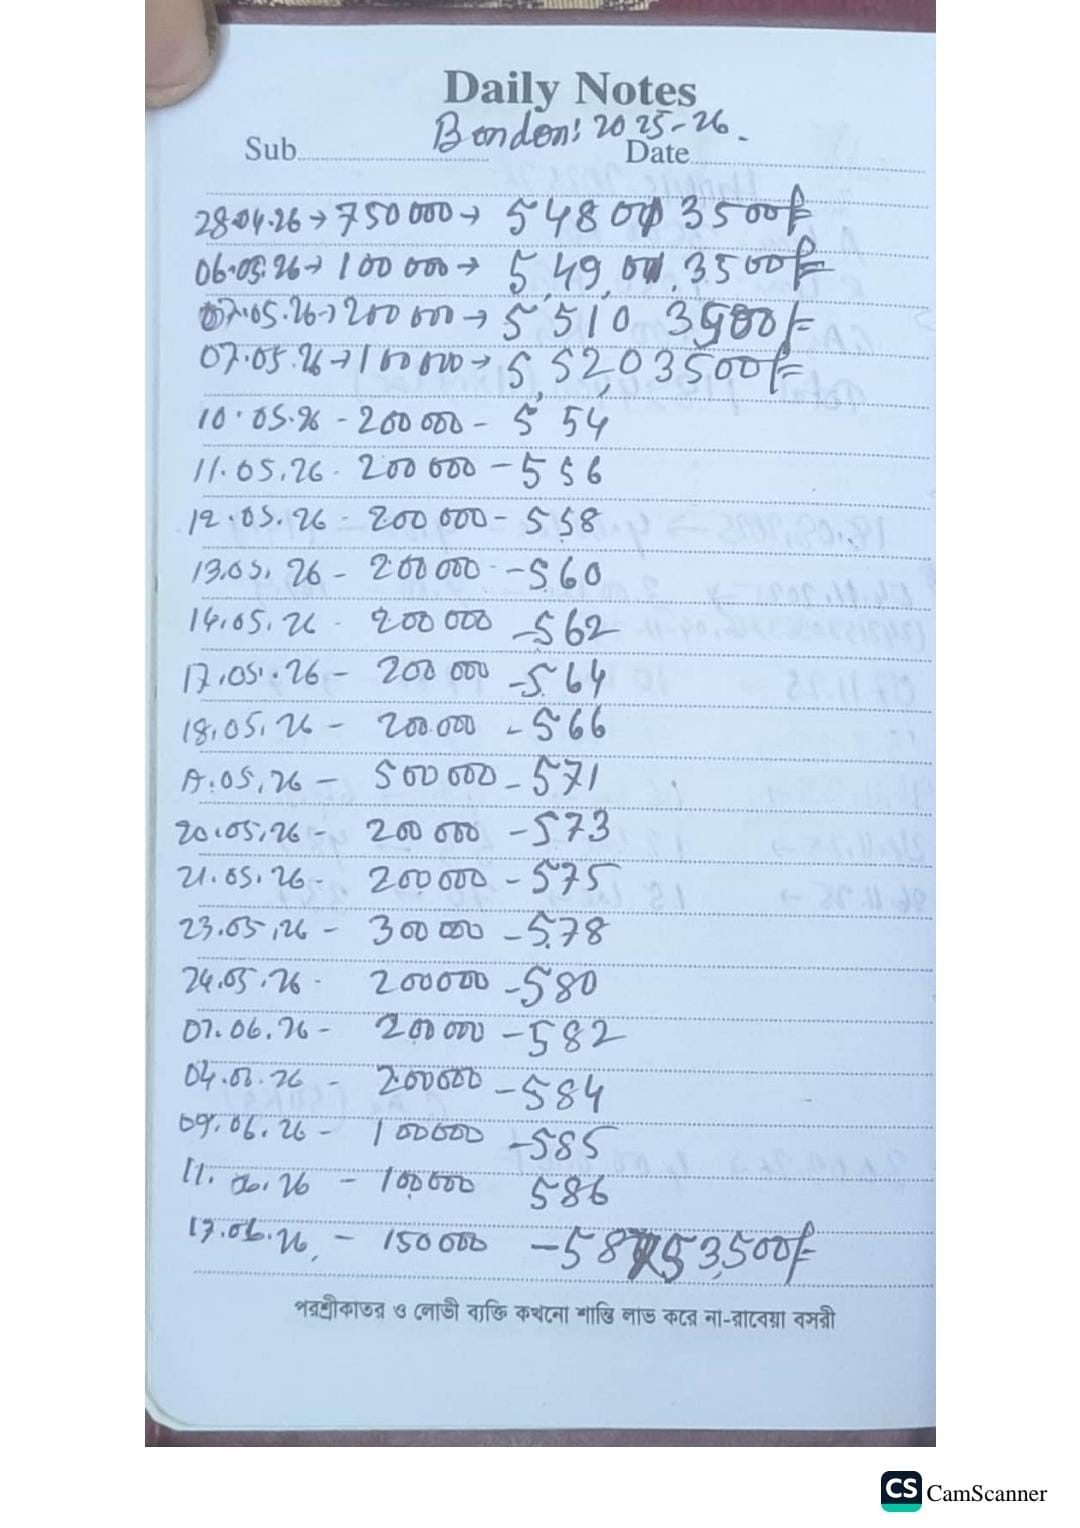 Daily Notes
Bondon: 2025-26.
Sub.
Date
28.04.26 → 750000 → 548 03500/=
06.05.26 → 100000 → 5,49,03500/=
07.05.26 → 200000 → 5,510 3500/=
07.05.26 → 100000 → 5,52,03500/=
10.05.26 - 200000 - 554
11.05.26 - 200000 - 556
12.05.26 - 200000 - 558
13.05.26 - 200000 - 560
14.05.26 - 200000 - 562
17.05.26 - 200000 - 564
18.05.26 - 200000 - 566
19.05.26 - 500000 - 571
20.05.26 - 200000 - 573
21.05.26 - 200000 - 575
23.05.26 - 300000 - 578
24.05.26 - 200000 - 580
07.06.26 - 200000 - 582
04.06.26 - 200000 - 584
09.06.26 - 100000 - 585
11.06.26 - 100000 586
17.06.26, - 150000 - 58753,500/=
পরশ্রীকাতর ও লোভী ব্যক্তি কখনো শান্তি লাভ করে না-রাবেয়া বসরী
CS CamScanner